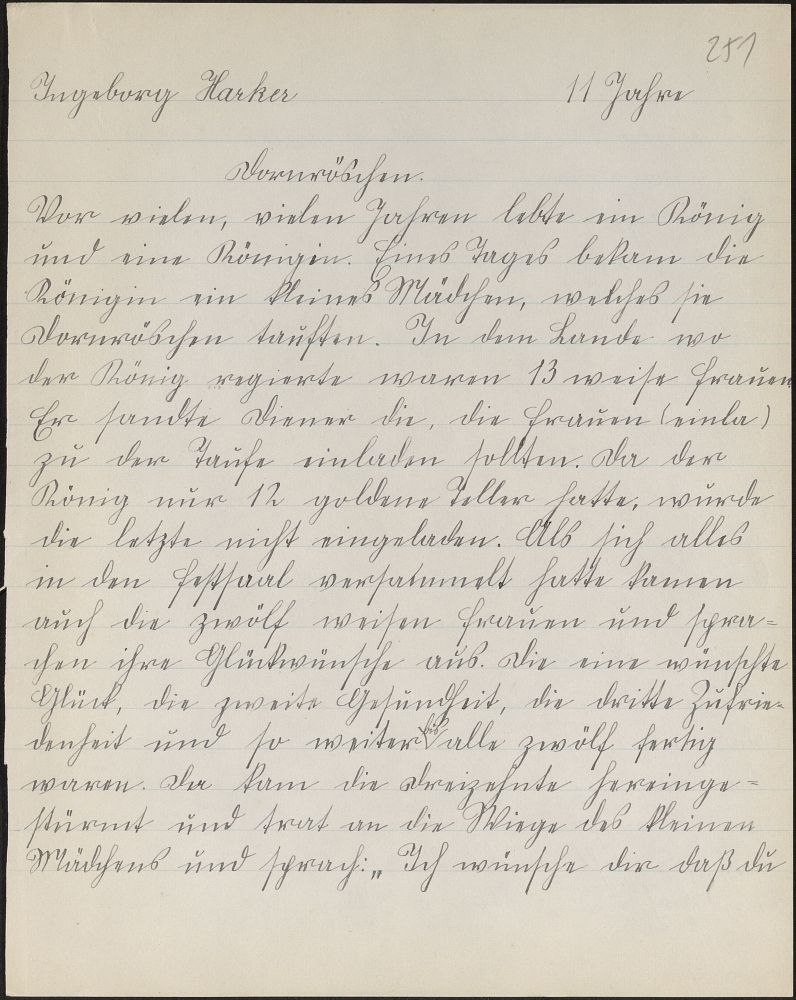 251
Ingeborg Harker 11 Jahre
Dornröschen.
Vor vielen, vielen Jahren lebte ein König
und eine Königin. Eines Tages bekam die
Königin ein kleines Mädchen, welches sie
Dornröschen tauften. In dem Lande wo
der König regierte waren 13 weise Frauen
Er sandte Diener die, die Frauen (einla)
zu der Taufe einladen sollten. Da der
König nur 12 goldene Teller hatte, wurde
die letzte nicht eingeladen. Als sich alles
in den Festsaal versammelt hatte kamen
auch die zwölf weisen Frauen und spra=
chen ihre Glückwünsche aus. Die eine wünschte
Glück, die zweite Gesundheit, die dritte Zufrie=
denheit und so weiter bis alle zwölf fertig
waren. Da kam die Dreizehnte hereinge=
stürmt und trat an die Wiege des kleinen
Mädchens und sprach: „Ich wünsche dir daß du